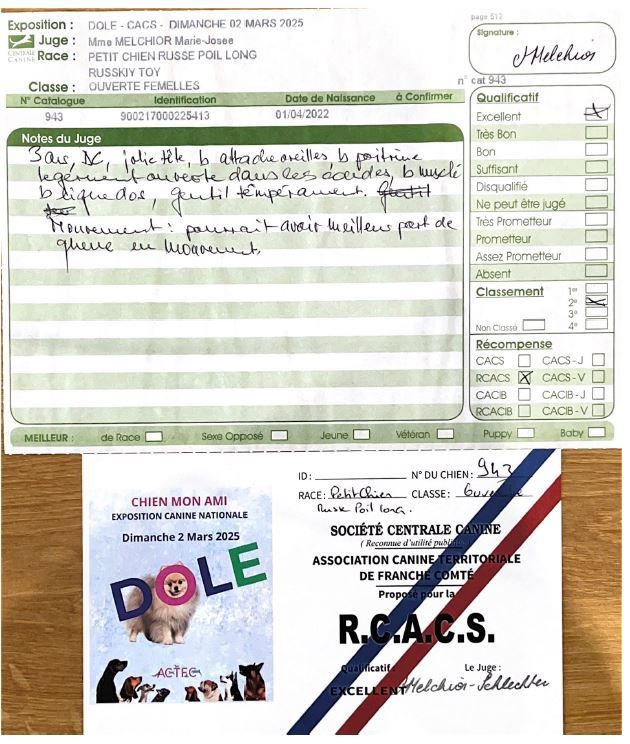 page 512
Exposition : DOLE - CACS - DIMANCHE 02 MARS 2025
Juge : Mme MELCHIOR Marie-Josee
CENTRALE CANINE
Race : PETIT CHIEN RUSSE POIL LONG
RUSSKIY TOY
Classe : OUVERTE FEMELLES
Signature :
JMelchior
n° cat 943
N° Catalogue Identification Date de Naissance à Confirmer
943 900217000225413 01/04/2022
Notes du Juge
3 ans, DC, jolie tête, b attache oreilles, b poitrine
legerment ouverte dans les coudes, b musclé
b ligne dos, gentil tempérament. gentil
Mouvement : pourrait avoir meilleur port de
queue en mouvement.
Qualificatif
Excellent
Très Bon
Bon
Suffisant
Disqualifié
Ne peut être jugé
Très Prometteur
Prometteur
Assez Prometteur
Absent
Classement 1er
2e
3e
Non Classé 4e
Récompense
CACS CACS - J
RCACS X CACS - V
CACIB CACIB - J
RCACIB CACIB - V
MEILLEUR : de Race Sexe Opposé Jeune Vétéran Puppy Baby
CHIEN MON AMI
EXPOSITION CANINE NATIONALE
Dimanche 2 Mars 2025
DOLE
ACTFC
ID: N° DU CHIEN: 943
RACE: Petit Chien CLASSE: Ouverte
Russe Poil Long.
SOCIÉTÉ CENTRALE CANINE
( Reconnue d'utilité publique )
ASSOCIATION CANINE TERRITORIALE
DE FRANCHE COMTÉ
Proposé pour la
R.C.A.C.S.
Qualificatif : Le Juge :
EXCELLENT Melchior-Schlechter